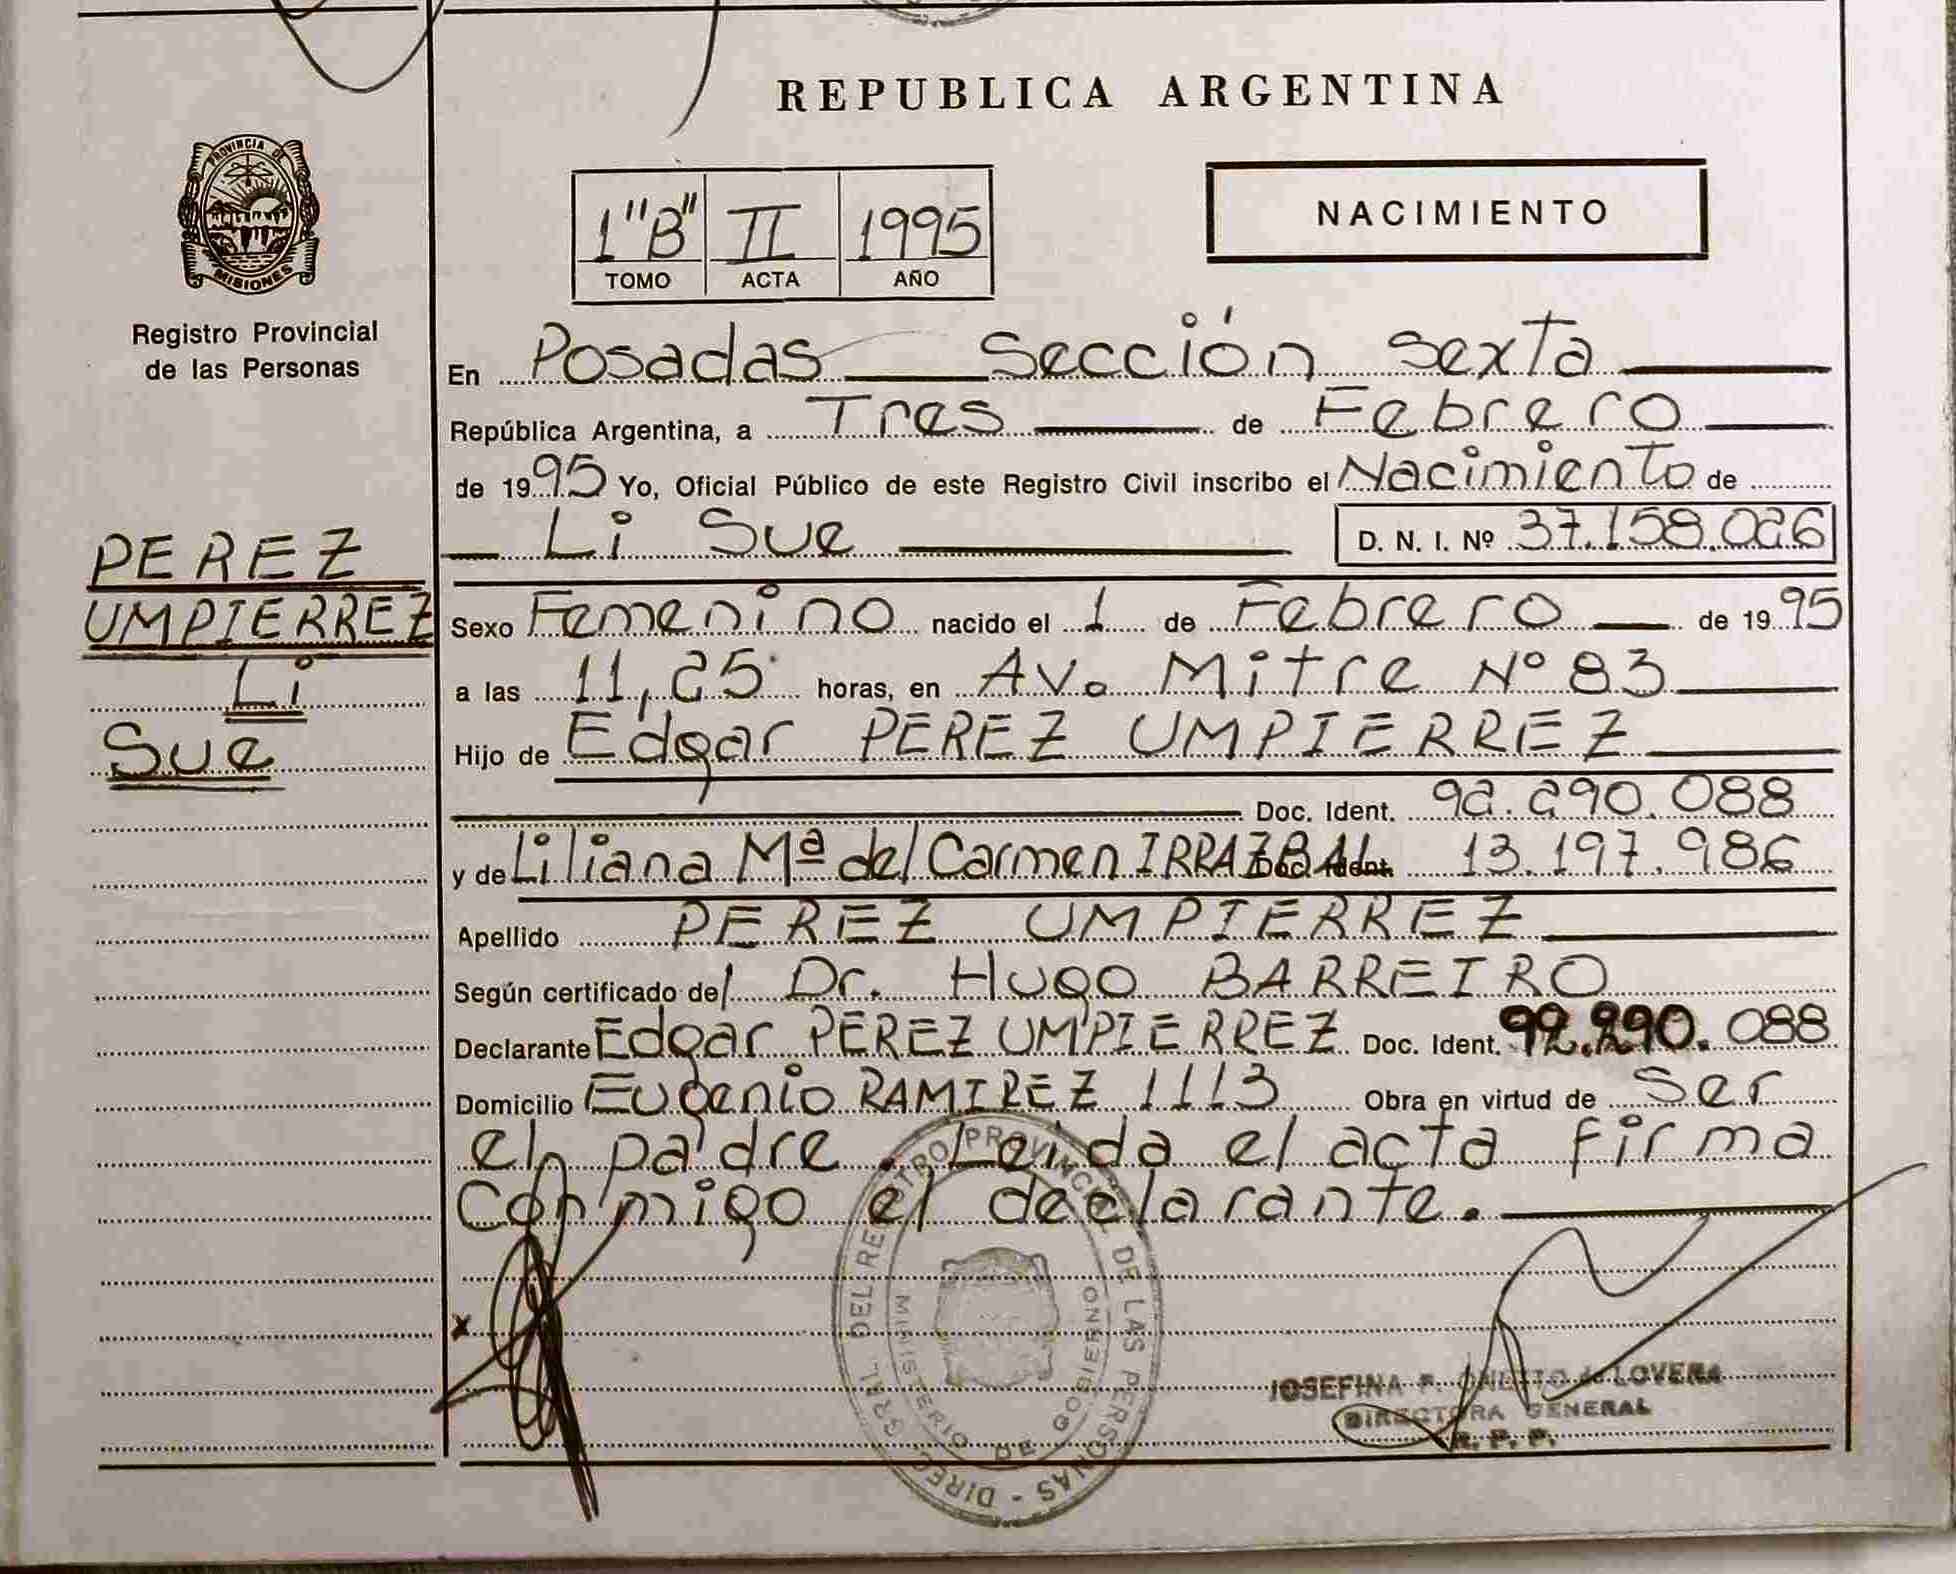 REPUBLICA ARGENTINA
PROVINCIA DE
MISIONES
Registro Provincial
de las Personas
1"B" II 1995
TOMO ACTA AÑO
NACIMIENTO
En Posadas Sección Sexta
República Argentina, a Tres de Febrero
de 1995 Yo, Oficial Público de este Registro Civil inscribo el Nacimiento de
Li Sue D. N. I. Nº 37.158.026
PEREZ
UMPIERREZ
Li
Sue
Sexo Femenino nacido el 1 de Febrero de 1995
a las 11,25 horas, en Av. Mitre Nº 83
Hijo de Edgar PEREZ UMPIERREZ
Doc. Ident. 92.290.088
y de Liliana Mª del Carmen IRRAZBAL Doc. Ident. 13.197.986
Apellido PEREZ UMPIERREZ
Según certificado del Dr. Hugo BARREIRO
Declarante Edgar PEREZ UMPIERREZ Doc. Ident. 92.290.088
Domicilio Eugenio RAMIREZ 1113 Obra en virtud de Ser
el padre. Leida el acta firma
conmigo el declarante.
x
DIREC. GRAL. DEL REGISTRO PROVINCIAL DE LAS PERSONAS -
MINISTERIO DE GOBIERNO
JOSEFINA P. de LOVERA
DIRECTORA GENERAL
R. P. P.